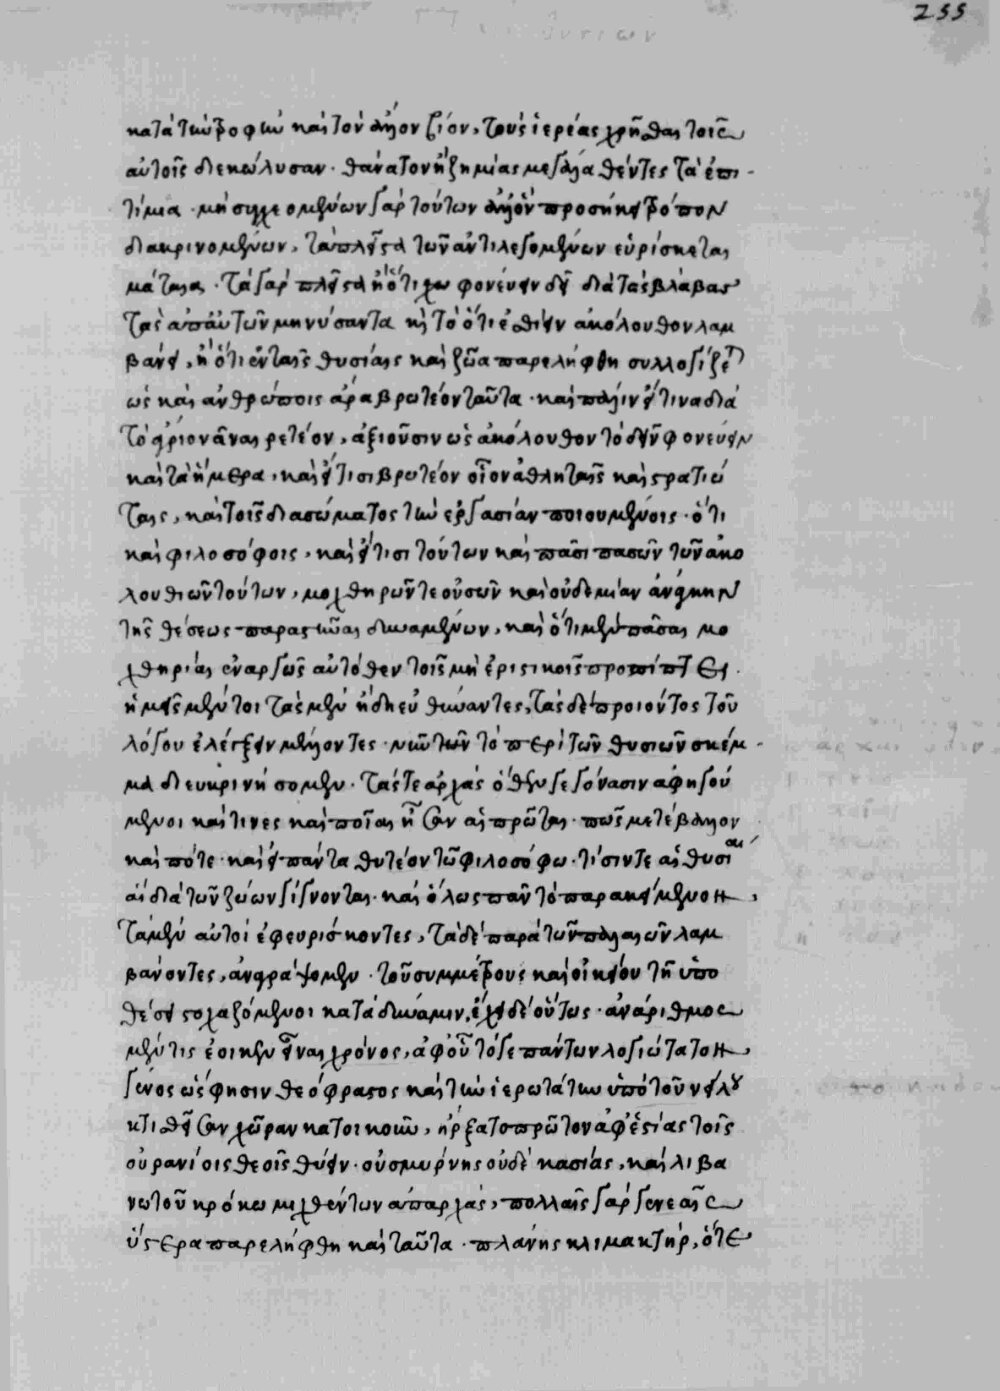 255
κατὰ τὴν τροφὴν καὶ τὸν ἄλλον βίον, τοὺς ἱερέας χρῆσθαι τοῖς
αὐτοῖς διεκώλυσαν· θάνατον ἢ ζημίας μεγάλα θέντες τὰ ἐπι-
τίμια· μὴ συγχεομένων γὰρ τούτων ἀλλ' ὃν προσήκει τρόπον
διακρινομένων, τὰ πλεῖστα τῶν ἀντιλεγομένων εὑρίσκεται
μάταια. τὰ γὰρ πλεῖστα ἢ ὅτι χρὴ φονεύειν δεῖ διὰ τὰς βλάβας
τὰς ἀπ' αὐτῶν μηνύσαντα εἰς τὸ ὅτι ἐσθίειν ἀκόλουθον λαμ
βάνει, ἢ ὅτι ἐν ταῖς θυσίαις καὶ ζῶα παρελήφθη συλλογίζεται
ὡς καὶ ἀνθρώποις ἄρα βρωτέον ταῦτα· καὶ πάλιν εἴ τινα διὰ
τὸ ἄγριον ἀναιρετέον, ἀξιοῦσιν ὡς ἀκόλουθον τὸ δεῖν φονεύειν
καὶ τὰ ἥμερα, καὶ εἴ τισι βρωτέον οἷον ἀθληταῖς καὶ στρατιώ
ταις, καὶ τοῖς διὰ σώματος τὴν ἐργασίαν ποιουμένοις· ὅτι
καὶ φιλοσόφοις, καὶ εἴ τισι τούτων καὶ πᾶσι πασῶν τῶν ἀκο
λουθιῶν τούτων, μοχθηρῶν τε οὐσῶν καὶ οὐδεμίαν ἀνάγκην
τῆς θέσεως παραστῆσαι δυναμένων, καὶ ὅτι μὲν πᾶσαι μο
χθηρίαι ἐναργῶς αὐτόθεν τοῖς μὴ ἐριστικοῖς προσπίπτει·
ἡμεῖς μέντοι τὰς μὲν ἤδη εὐθύναντες, τὰς δὲ προϊόντος τοῦ
λόγου ἐλέγξειν μέλλοντες· νῦν τῶν τὸ περὶ τῶν θυσιῶν σκέμ-
μα διευκρινήσομεν· τάς τε ἀρχὰς ὅθεν γεγόνασιν ἀφηγού
μενοι καὶ τίνες καὶ ποῖαι ἦσαν αἱ πρῶται· πῶς μετέβαλλον
καὶ πότε· καὶ εἰ πάντα θυτέον τῶ φιλοσόφω· τίσιν τε αἱ θυσίαι
αἱ διὰ τῶν ζώων γίγνονται· καὶ ὅλως πᾶν τὸ παρακείμενον,
τὰ μὲν αὐτοὶ ἐφευρίσκοντες, τὰ δὲ παρὰ τῶν παλαιῶν λαμ
βάνοντες, ἀναγράψομεν· τοῦ συμμέτρους καὶ οἰκείου τῇ ὑπο
θέσει στοχαζόμενοι κατὰ δύναμιν, ἔχει δὲ οὕτως· ἀνάριθμος
μέν τις ἔοικεν εἶναι χρόνος, ἀφ' οὗ τό γε πάντων λογιώτατον,
γένος ὥς φησιν θεόφραστος καὶ τὴν ἱερωτάτην ὑπὸ τοῦ νείλου
κτισθεῖσαν χῶραν κατοικοῦν, ἤρξατο πρῶτον ἀφ' ἑστίας τοῖς
οὐρανίοις θεοῖς θύειν· οὐ σμύρνης οὐδὲ κασίας, καὶ λιβα
νωτοῦ κρόκω μιχθέντων ἀπαρχάς, πολλαῖς γὰρ γενεαῖς
ὕστερα παρελήφθη καὶ ταῦτα· πλάνης κλιμακτήρ, ὅτε